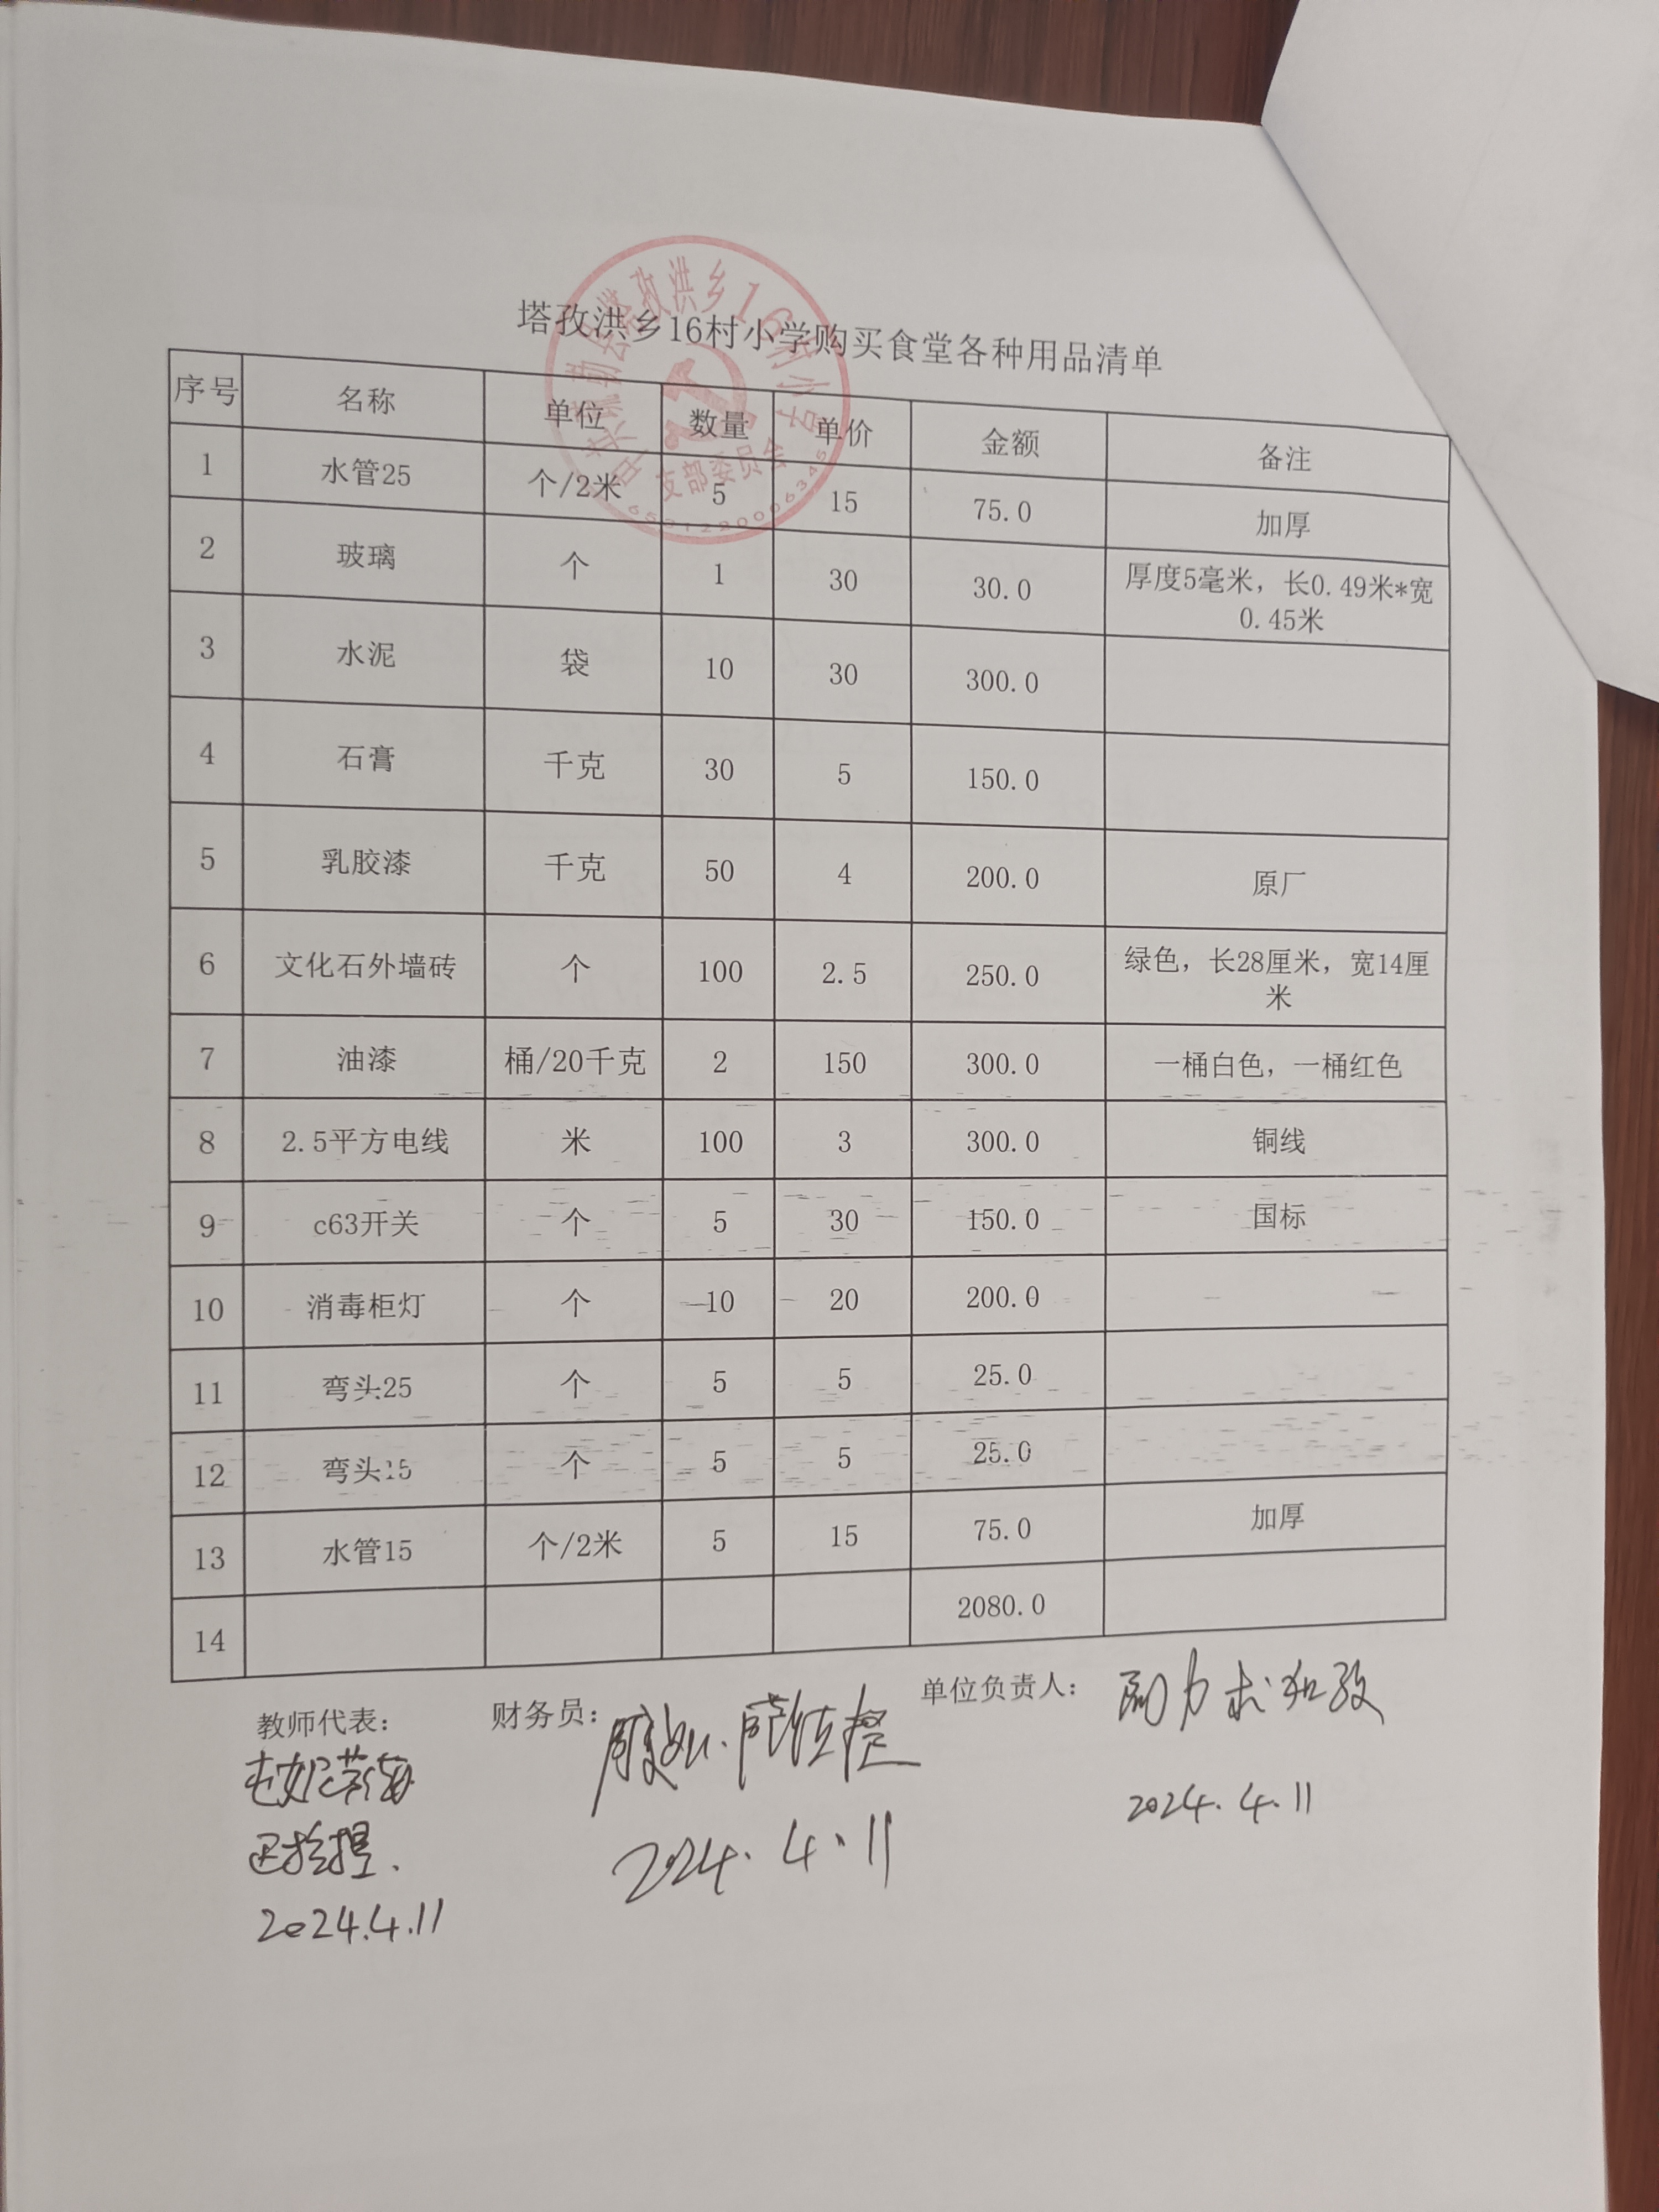 塔孜洪乡16村小学购买食堂各种用品清单
序号 名称 单位 数量 单价 金额 备注
1 水管25 个/2米 5 15 75.0 加厚
2 玻璃 个 1 30 30.0 厚度5毫米，长0.49米*宽
0.45米
3 水泥 袋 10 30 300.0
4 石膏 千克 30 5 150.0
5 乳胶漆 千克 50 4 200.0 原厂
6 文化石外墙砖 个 100 2.5 250.0 绿色，长28厘米，宽14厘
米
7 油漆 桶/20千克 2 150 300.0 一桶白色，一桶红色
8 2.5平方电线 米 100 3 300.0 铜线
9 c63开关 个 5 30 150.0 国标
10 消毒柜灯 个 10 20 200.0
11 弯头25 个 5 5 25.0
12 弯头15 个 5 5 25.0
13 水管15 个/2米 5 15 75.0 加厚
14 2080.0
教师代表： 财务员： 单位负责人：
2024.4.11 2024.4.11 2024.4.11
支部委员会